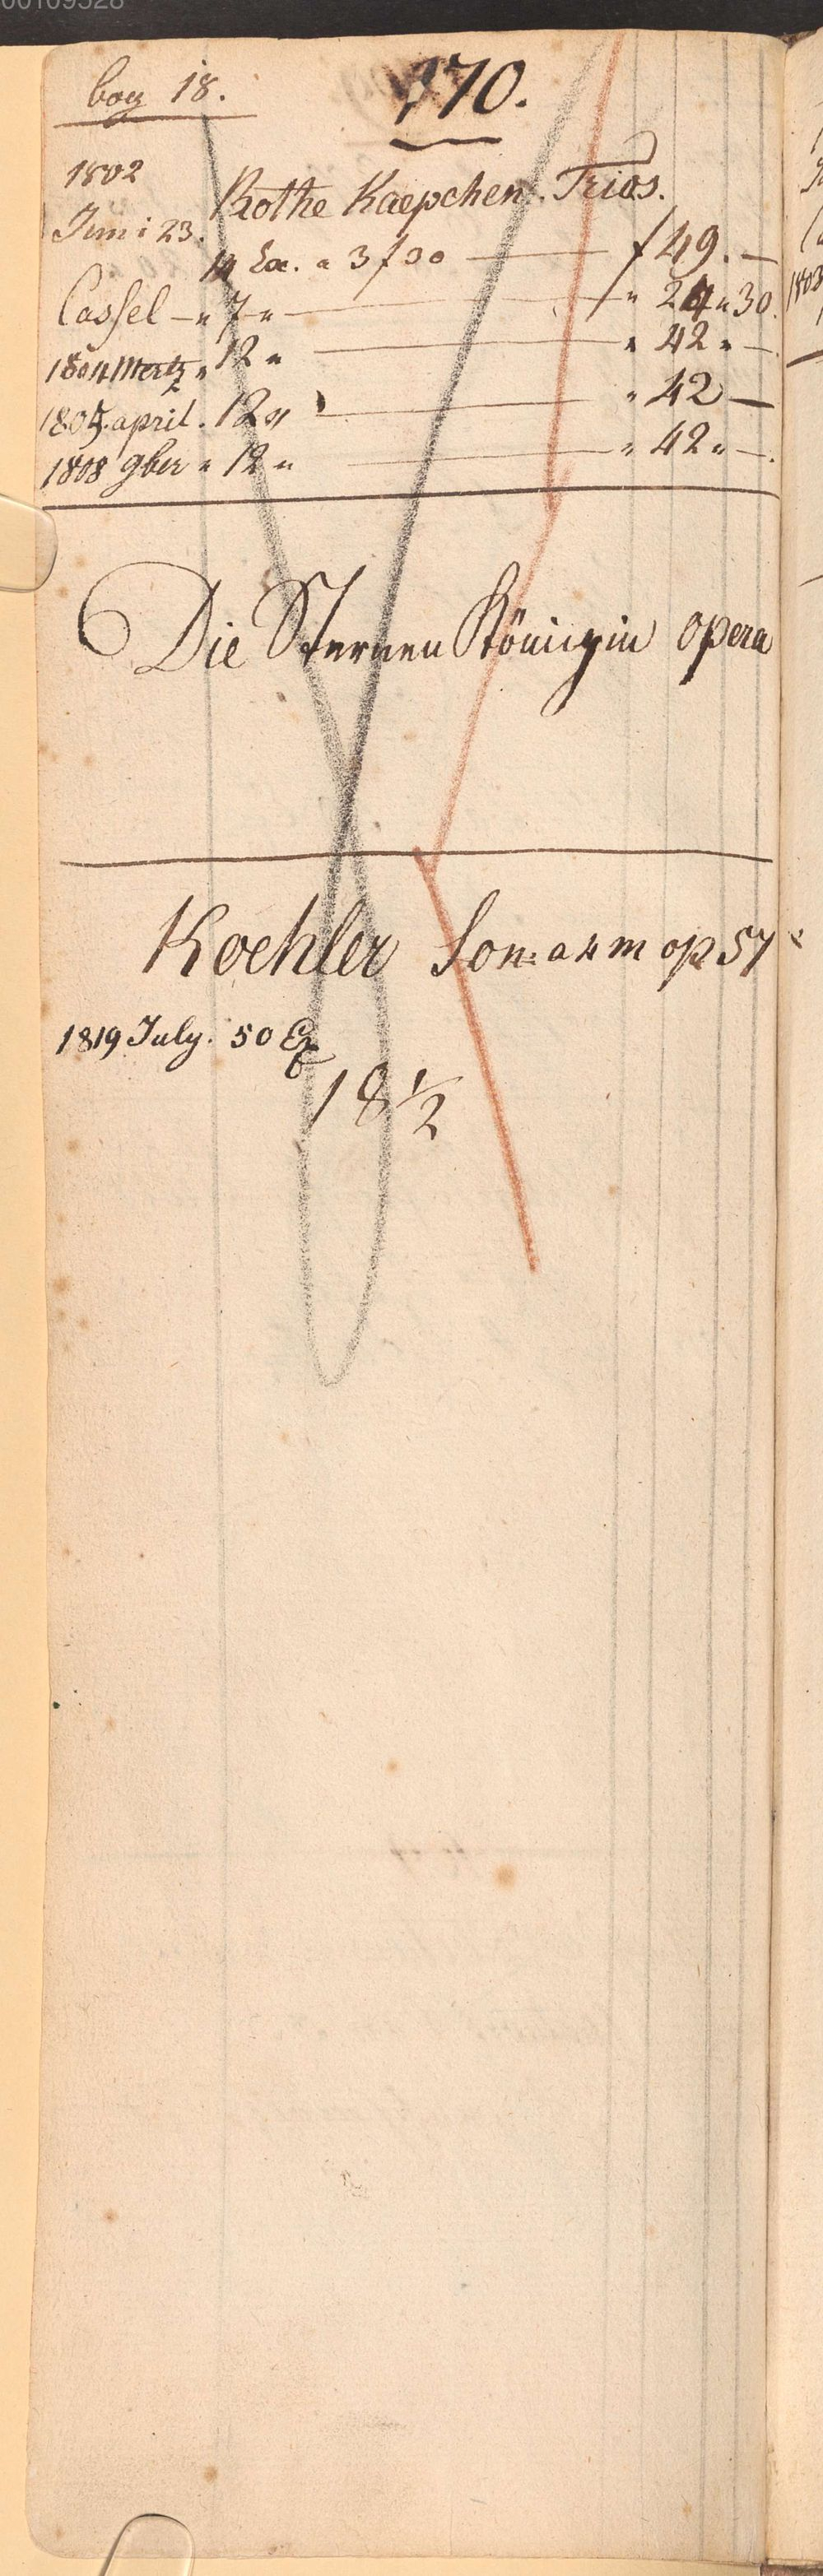 bog 18.
170.
1802
Rothe Kaepchen. Trios.
Juni 23.
14 Ex. a 3f30 — f 49. —
Cassel — " 7 " — " 24 " 30.
1804 Mertz " 12 " — " 42 " —
1805. april. 12 " — " 42 —
1808 9ber " 12 " — " 42 " —.
Die Sternen Königin opera
Koehler Son: a 4 m op 57
1819 July. 50 Ex
18 1/2